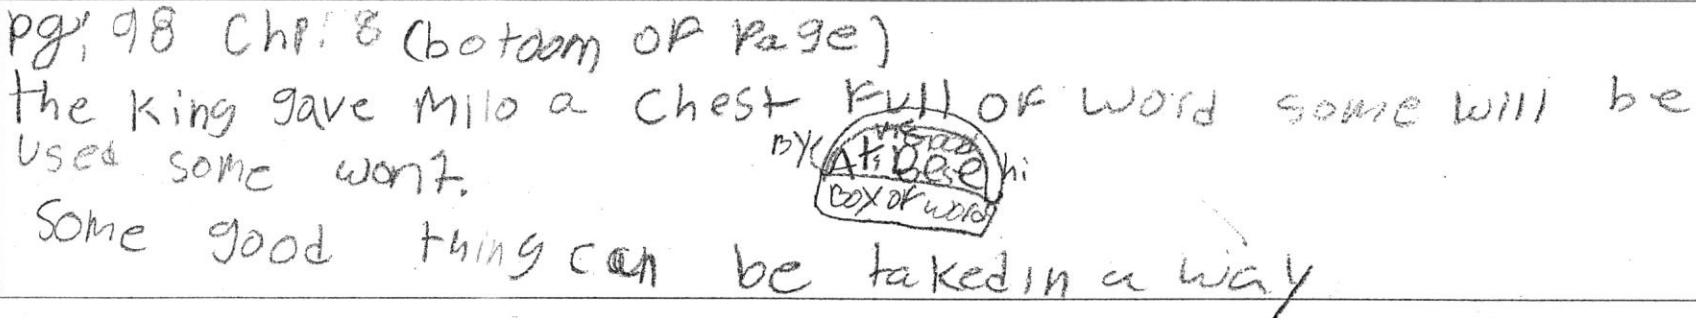 pg. 98 Chp. 8 (botoom of Page)
the King gave Milo a Chest Full of word some will be
used some wont.
BOX OF words
hi
Some good thing can be taked in a way